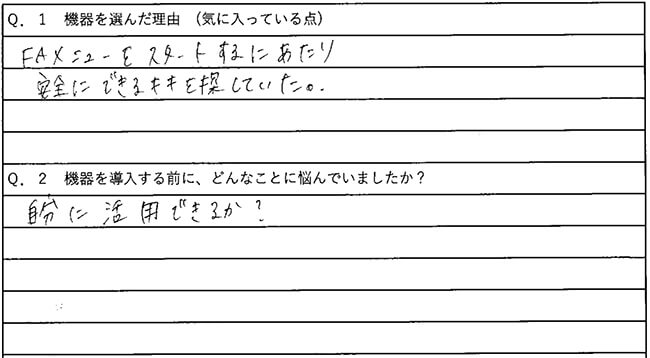 Q. 1 機器を選んだ理由 (気に入っている点)
FAXニューをスタートするにあたり
安全にできるキキを探していた。
Q. 2 機器を導入する前に、どんなことに悩んでいましたか?
自分に活用できるか?